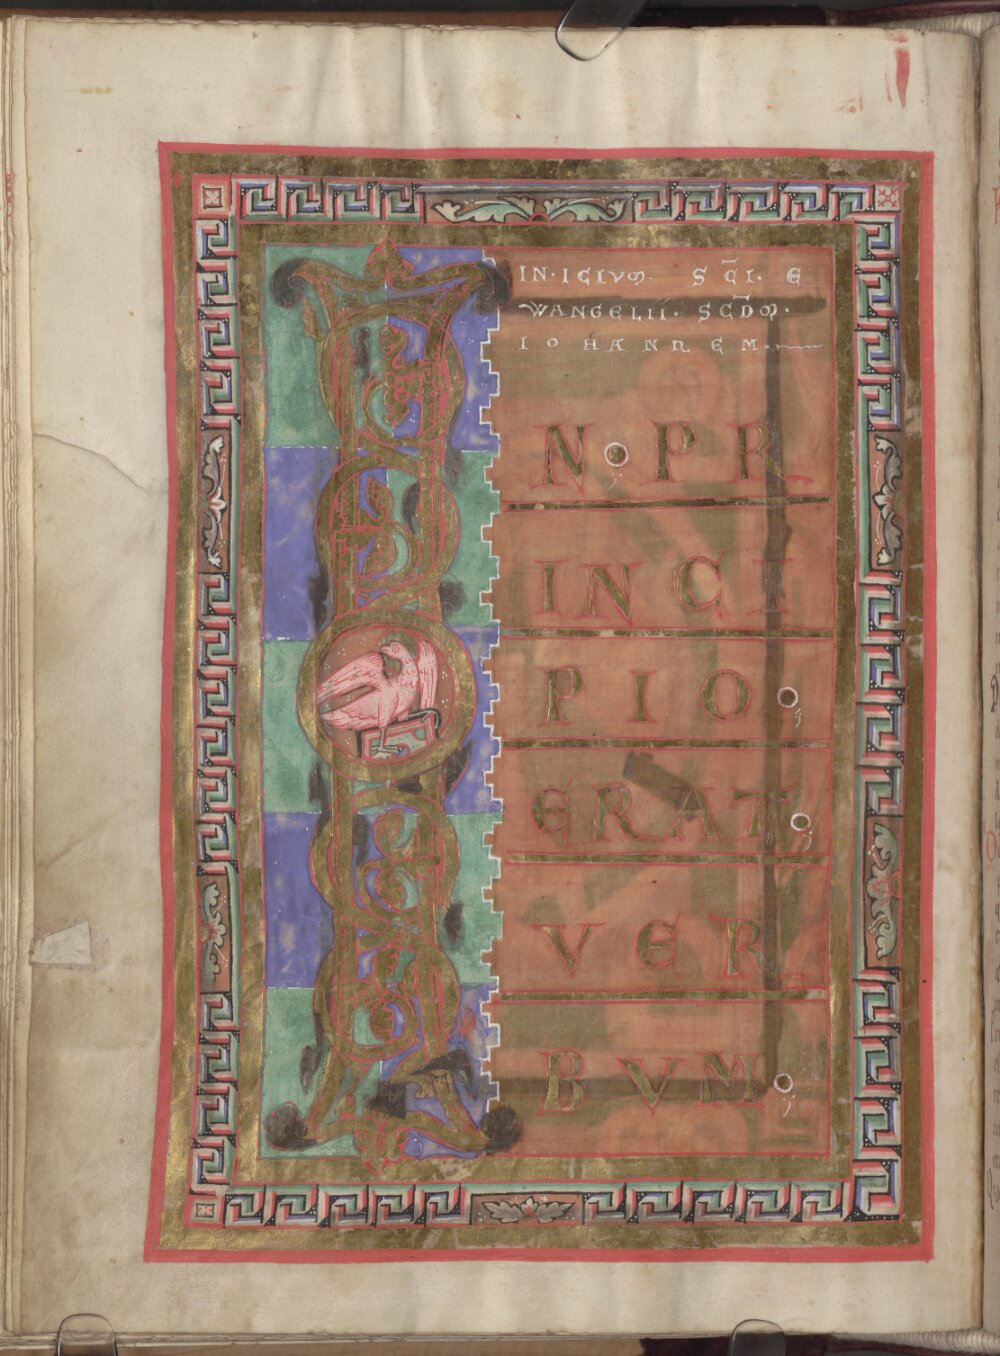 IN·ICIVM· SC̄I· E
WANGELII· SCD̄M·
IOHANNEM
I
N·PR
INCI
PIO
ERAT
VER
BVM